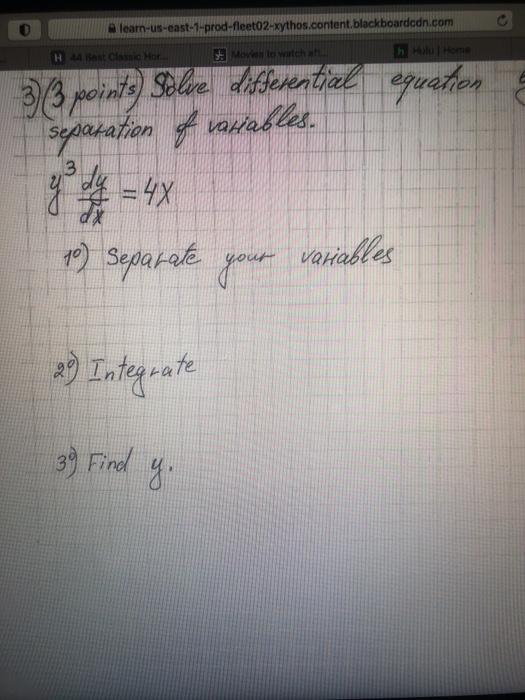 learn-us-east-1-prod-fleet02-xythos.content.blackboardcdn.com
H 44 Best Classic Hor... Movies to watch aft... h Hulu | Home
3) (3 points) Solve differential equation
separation of variables.
y³ dy/dx = 4x
1º) Separate your variables
2º) Integrate
3º) Find y.